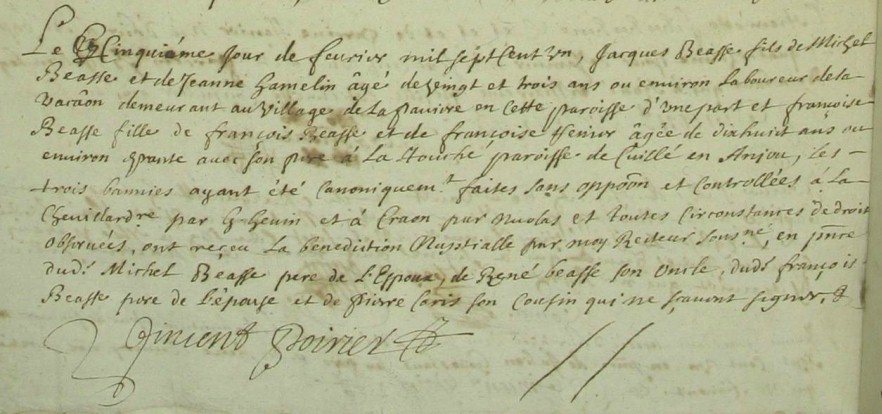 Le Cinquiéme Jour de feurier mil sept Cent vn, Jacques Beasse fils de Michel
Beasse et de Jeanne hamelin âgé de vingt et trois ans ou environ Laboureur de la
vacâon demeurant au Village de La en Cette paroisse d'vne part et françoise
Beasse fille de françois Beasse et de françoise âgée de diahuict ans ou
environ avec son pere à La touché paroisse de Cuillé en Anjou, les
trois bannies ayant été Canoniquem.t faites sans oppôôn et Controllées à La
par G et à Craon par et toutes Circonstances de droit
obseruées, ont reçeu La benediction Nusptialle par moy Recteur sous.né, en pnce
dud. Michel Beasse pere de L'Espoux, de René beasse son oncle, dud. françois
Beasse pere de L'épouse et de Pierre son Cousin qui ne sçauent signer, &
Vincent Poirier